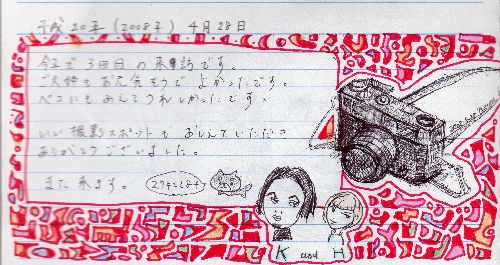 平成20年(2008年) 4月28日
今日で3回目の来訪です。
ご夫婦もお元気そうで よかったです。
ペコにも あえて うれしかったです。
いい 撮影スポットも おしえていただき
ありがとうございました。
また 来ます。
K and H